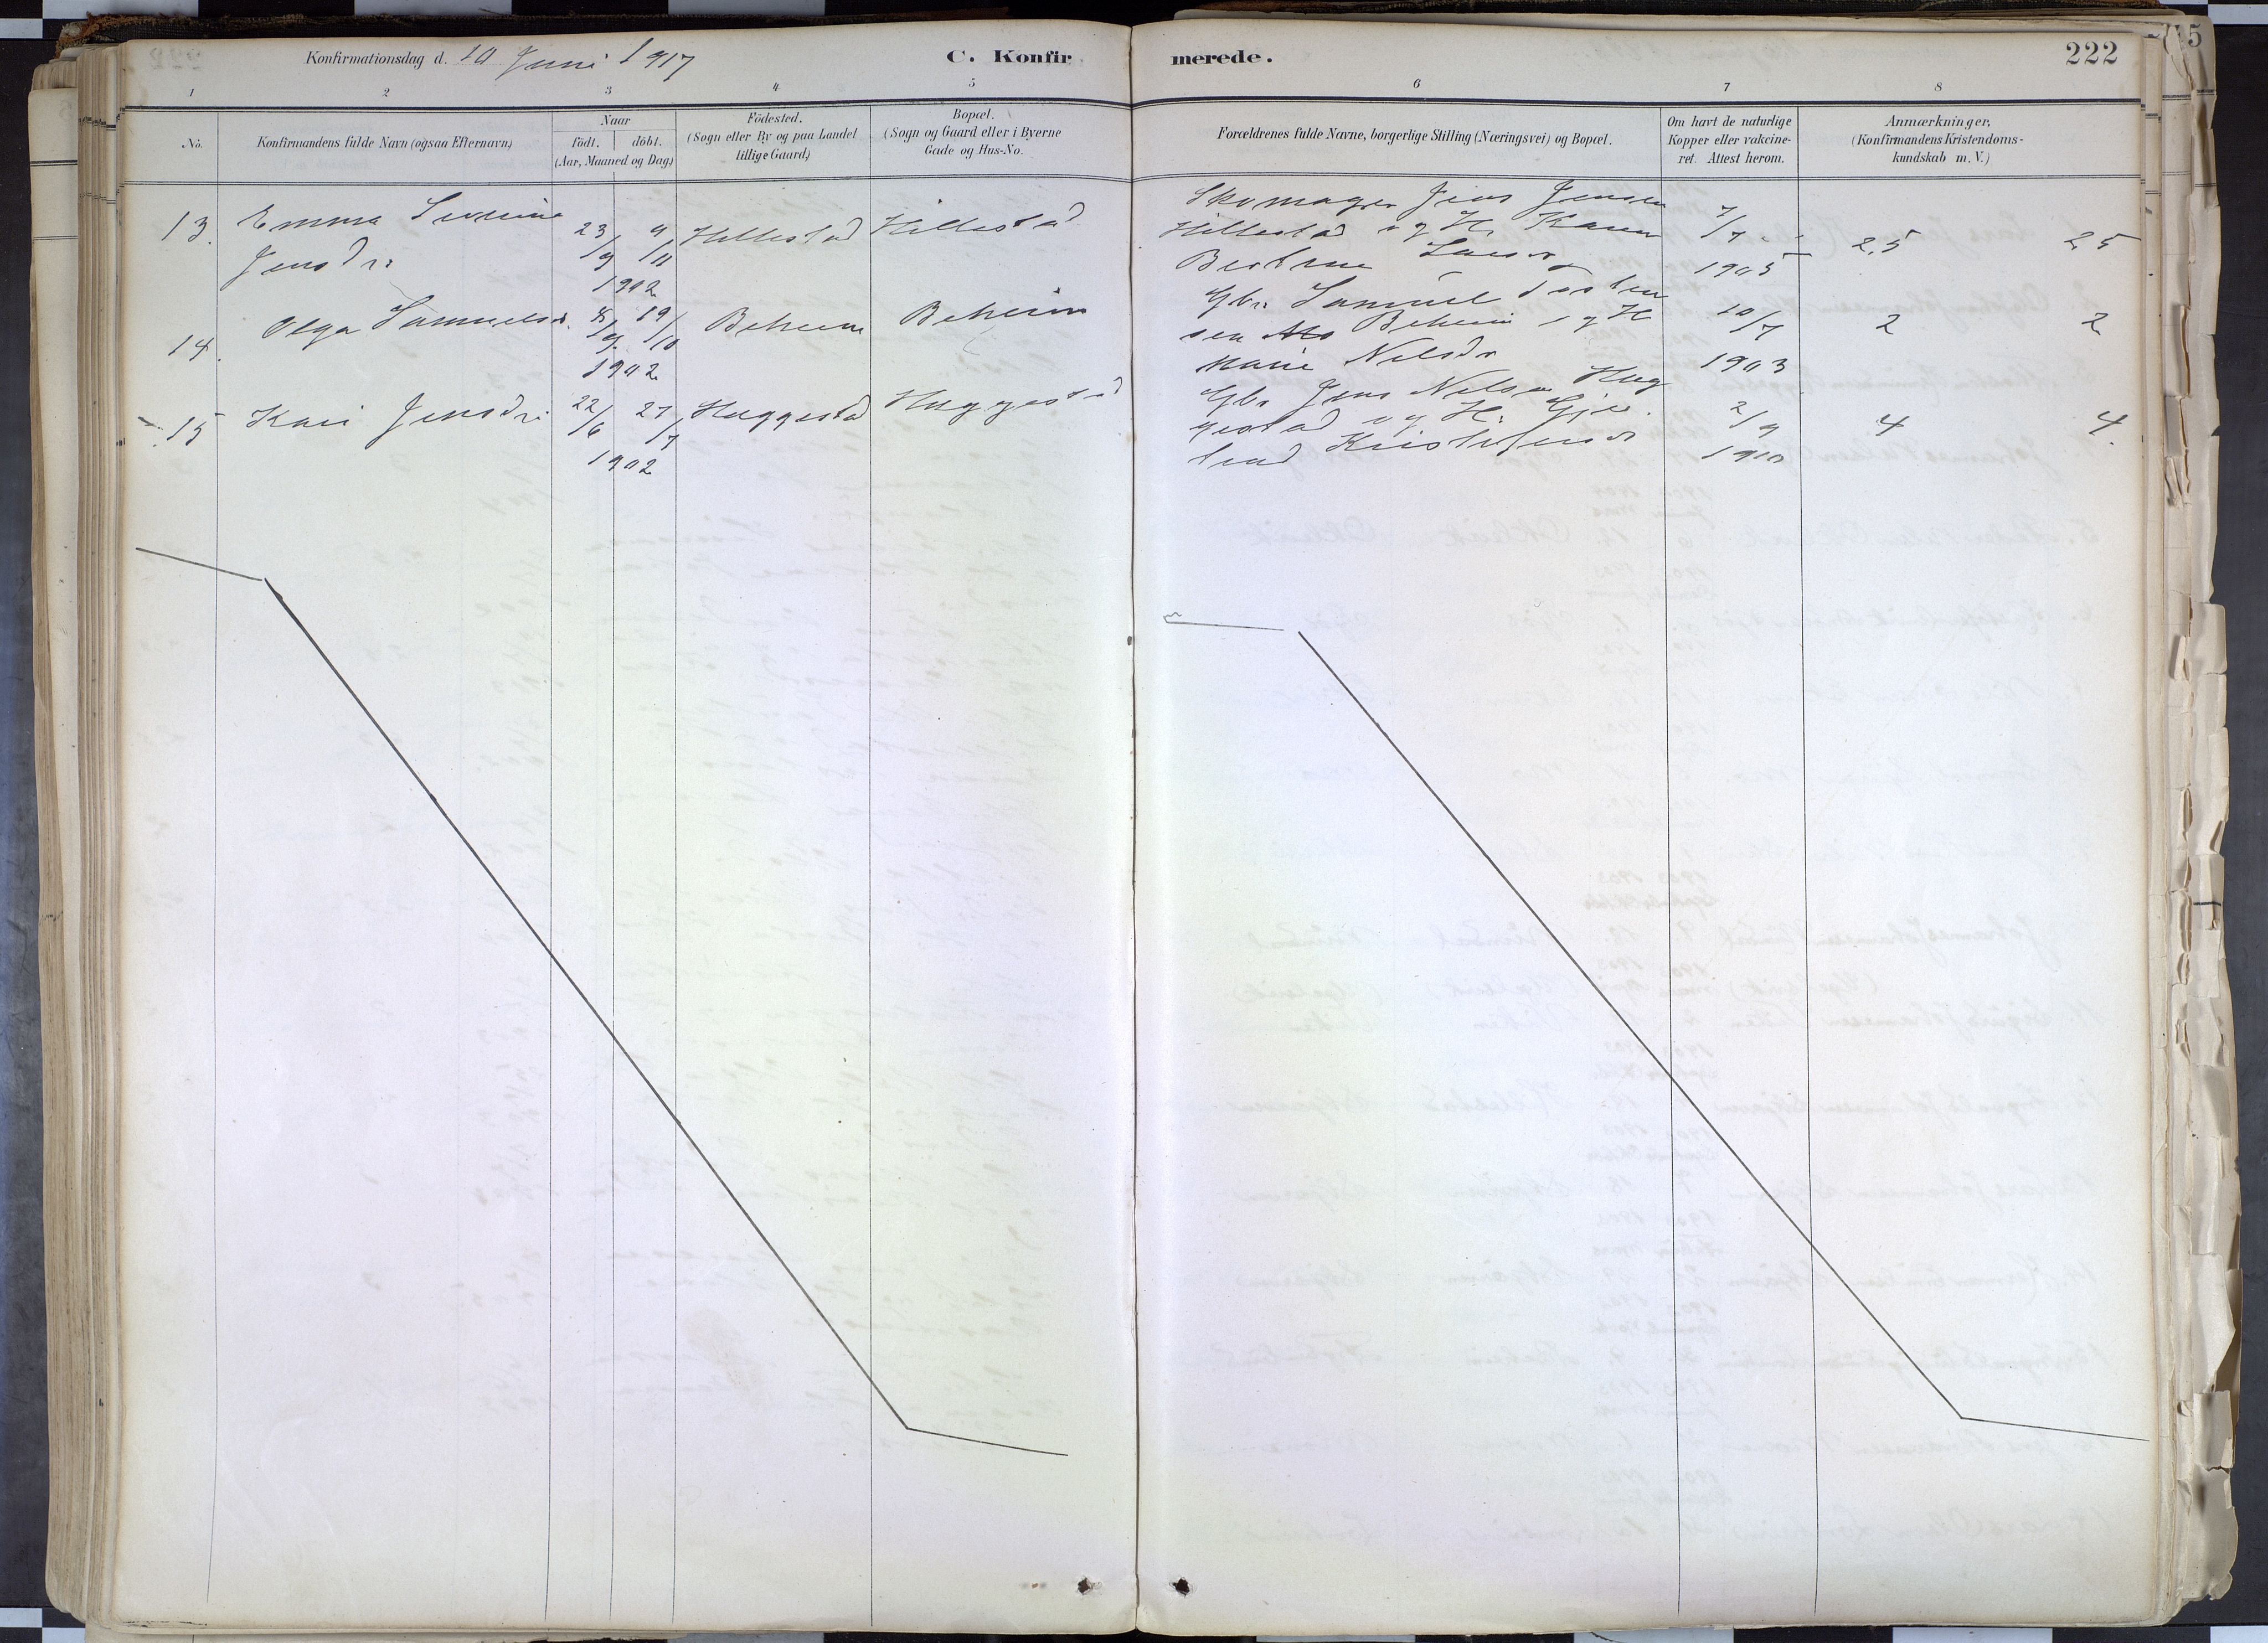 Konfirmationsdag d. 10 Juni 1917
C. Konfirmerede.
222
1 2 3 4 5 6 7 8
No.
Konfirmandens fulde Navn (ogsaa Efternavn)
Naar
födt. döbt.
(Aar, Maaned og Dag.)
Födested.
(Sogn eller By og paa Landet
tillige Gaard.)
Bopæl.
(Sogn og Gaard eller i Byerne
Gade og Hus-No.
Forældrenes fulde Navne, borgerlige Stilling (Næringsvei) og Bopæl.
Om havt de naturlige
Kopper eller vakcine-
ret. Attest herom.
Anmærkninger.
(Konfirmandens Kristendoms-
kundskab m. V.)
13. Emma
Jensdr.
23/9 9/11
1902
Hillestad
Hillestad
Skomager Jens Jensen
Hillestad og H. Karen
7/7
1905
2.5
25
14. Olga Samuelsdr.
8/9. 19/10
1902
Beheim
Beheim
Gbr. Samuel Tosten
sen Beheim og H
Marie Nelsdr
10/7
1903
2
2
15 Kari Jensdr.
22/6 27/7
1902
Huggestad
Huggestad
Gbr Jens Nelsen Hug
gestad og H. Gje
2/9
1910
4
4.